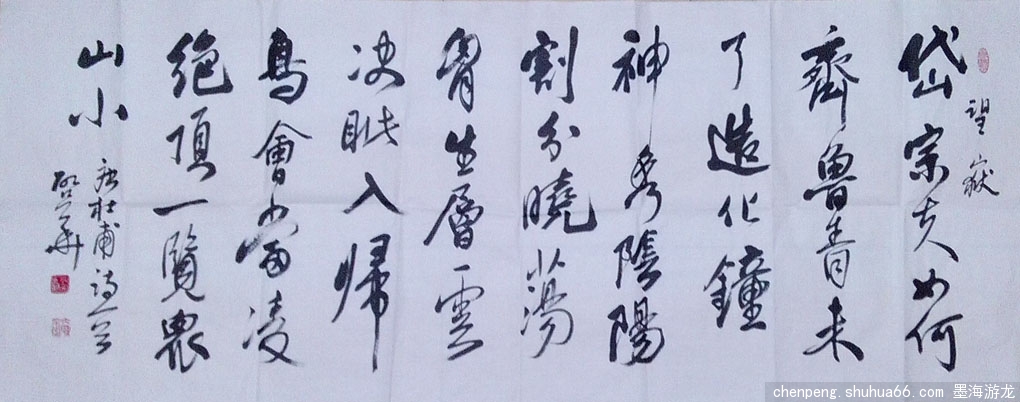 望嶽
岱宗夫如何
齊魯青未
了造化鐘
神秀陰陽
割分曉蕩
胷生層雲
决眦入歸
鳥會當凌
絕頂一覽衆
山小
唐杜甫詩一首
chenpeng.shuhua66.com 墨海游龙